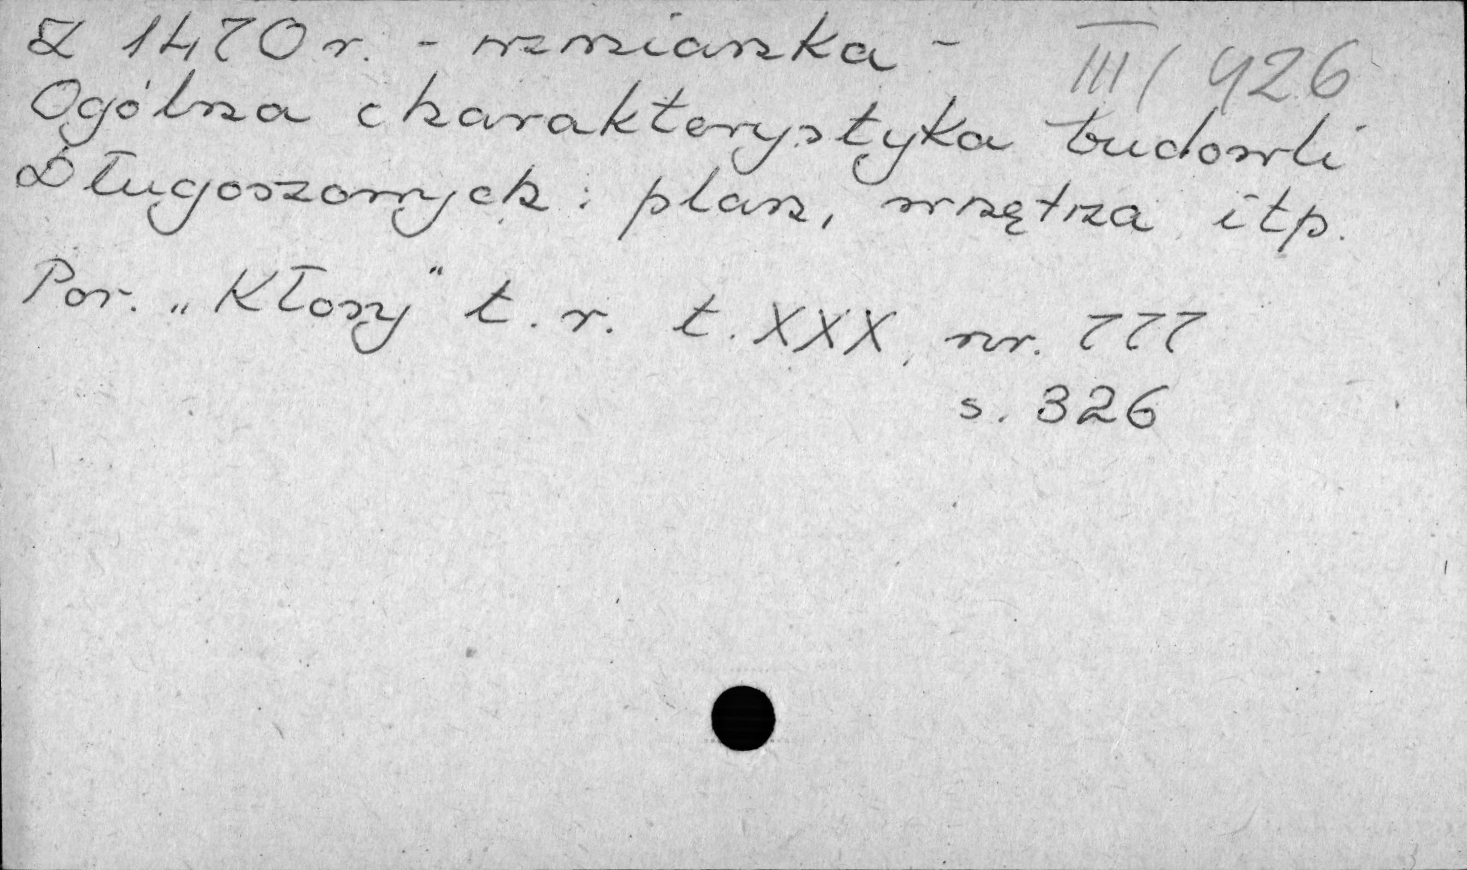 Z 1470 r. - wzmianka - III/426
Ogólna charakterystyka budowli
Długoszowych: plan, wnętrza itp.
Por. „Kłosy" t. r. t. XXX, nr. 777
s. 326